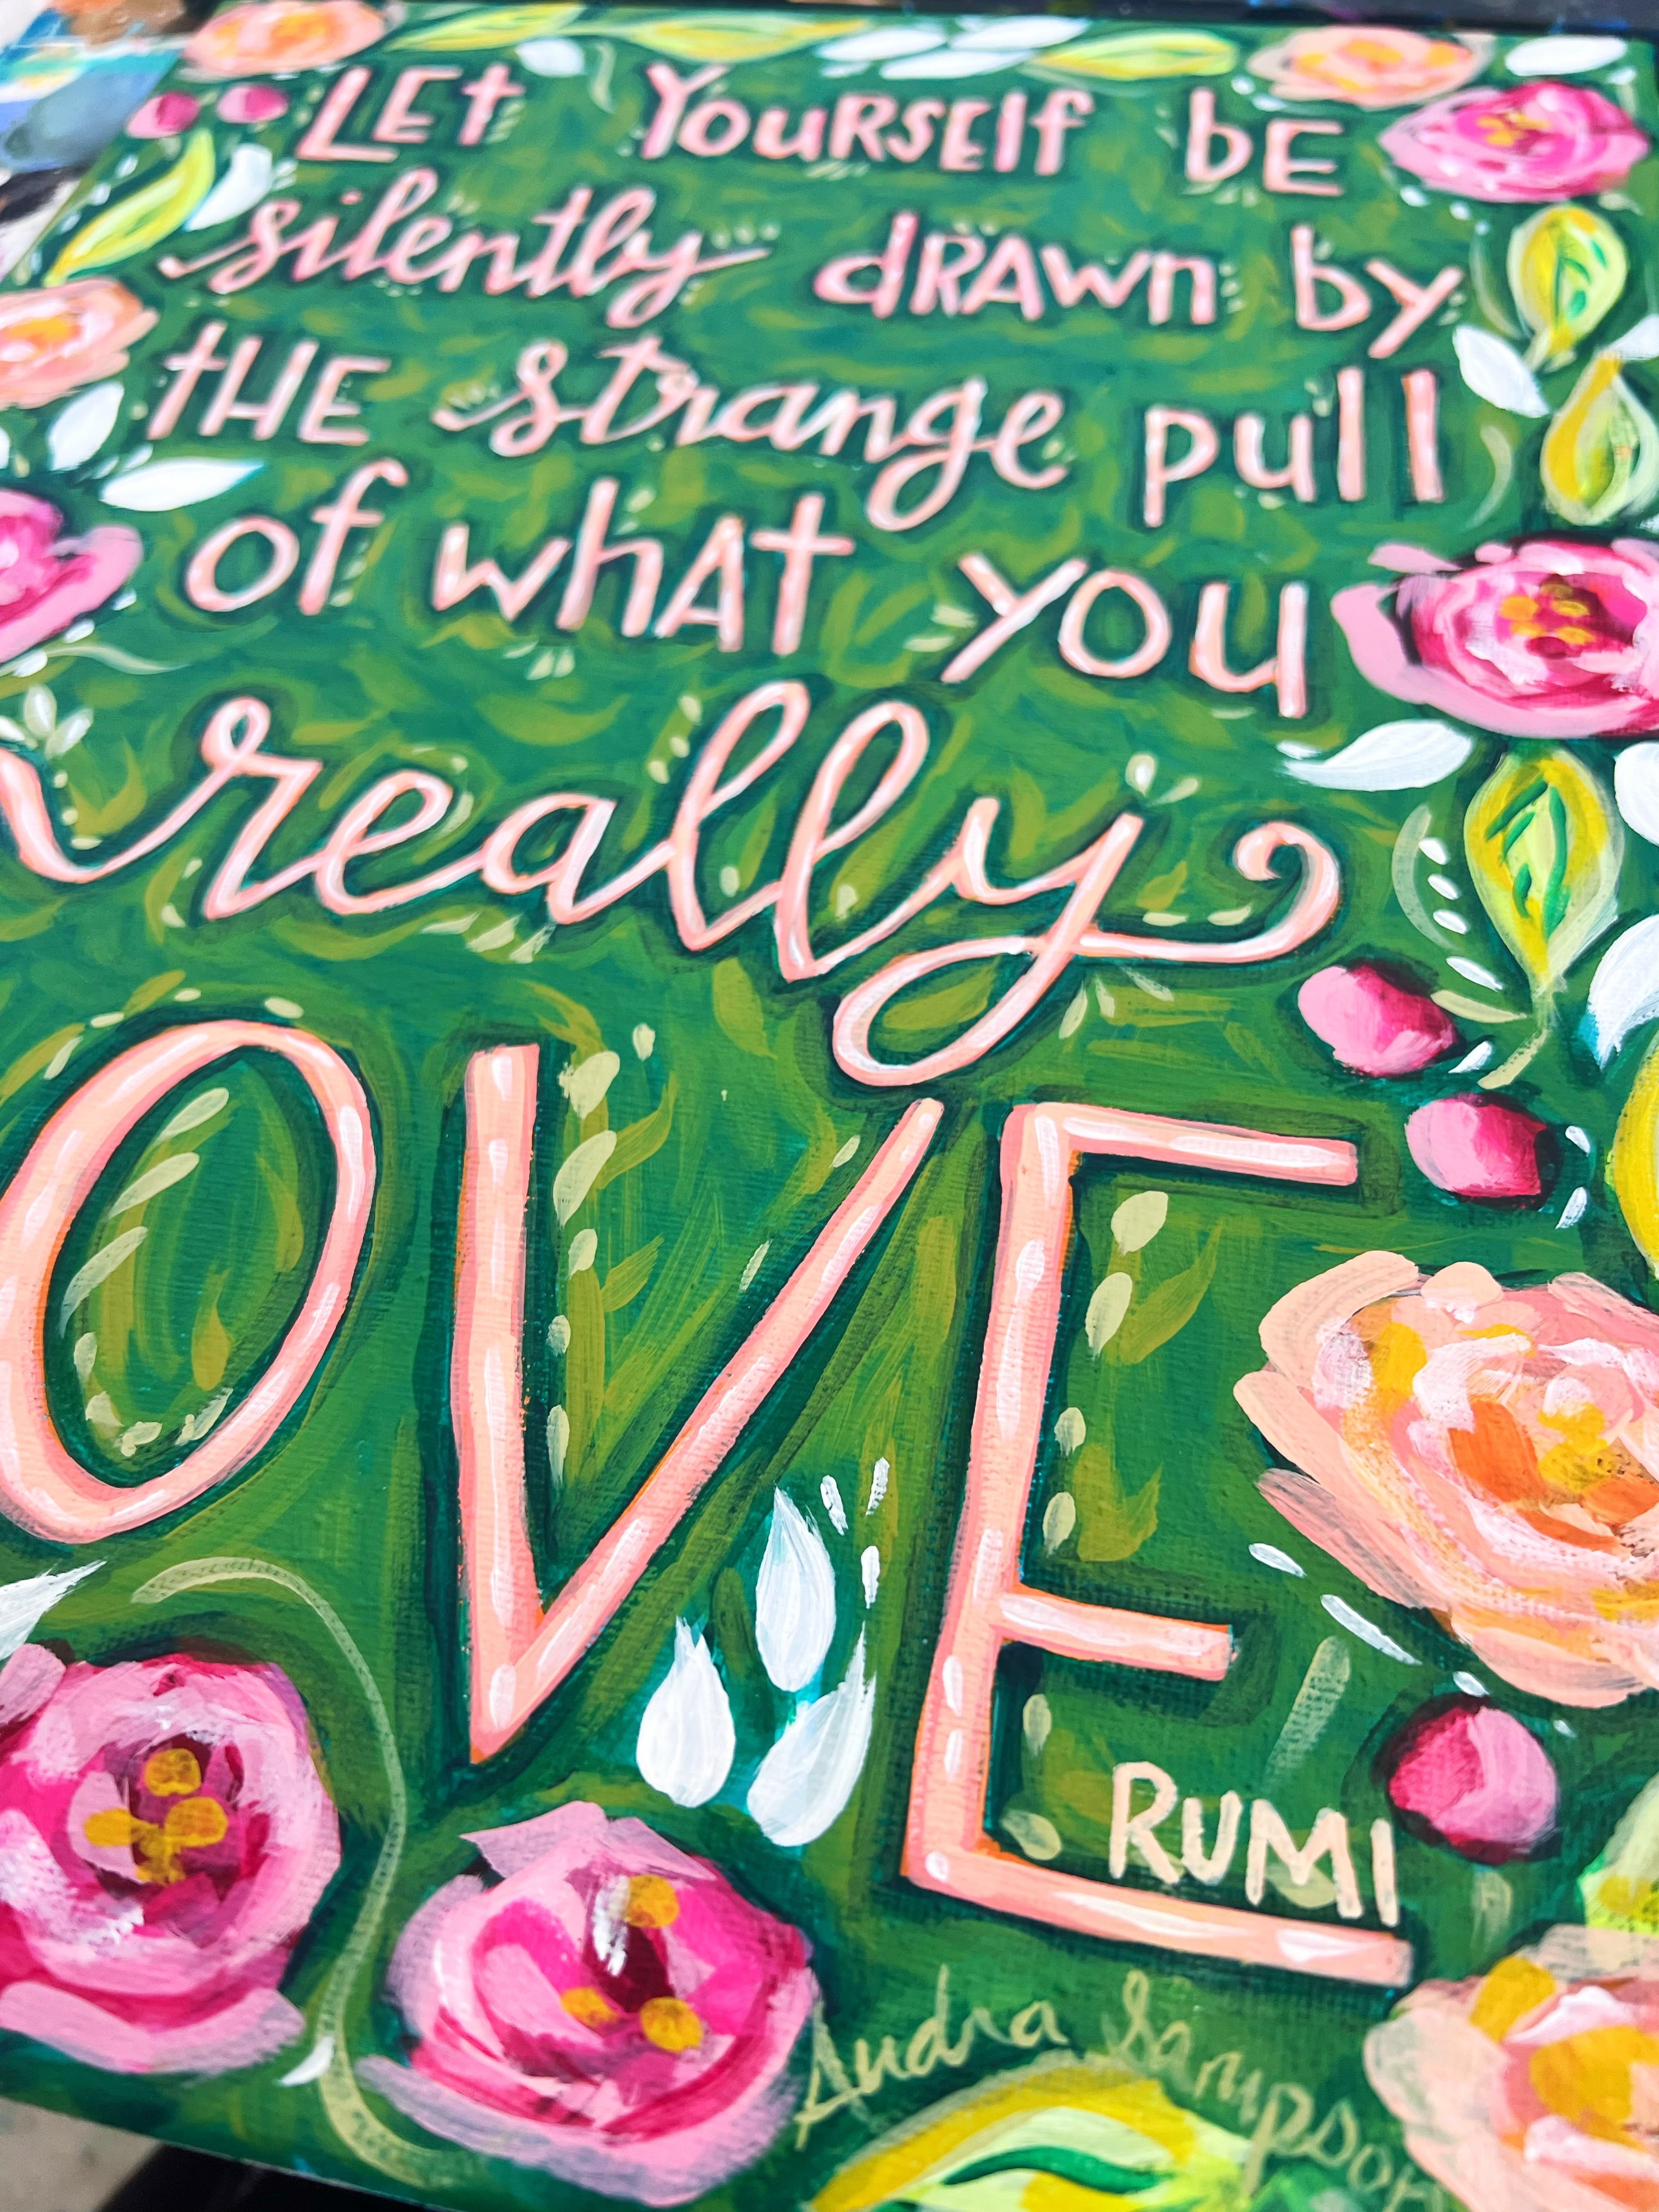 LEt YouRSElf bE
silently dRAwn by
tHE strange pull
of whAt you
really
OVE
RUMI
Audra Sampson